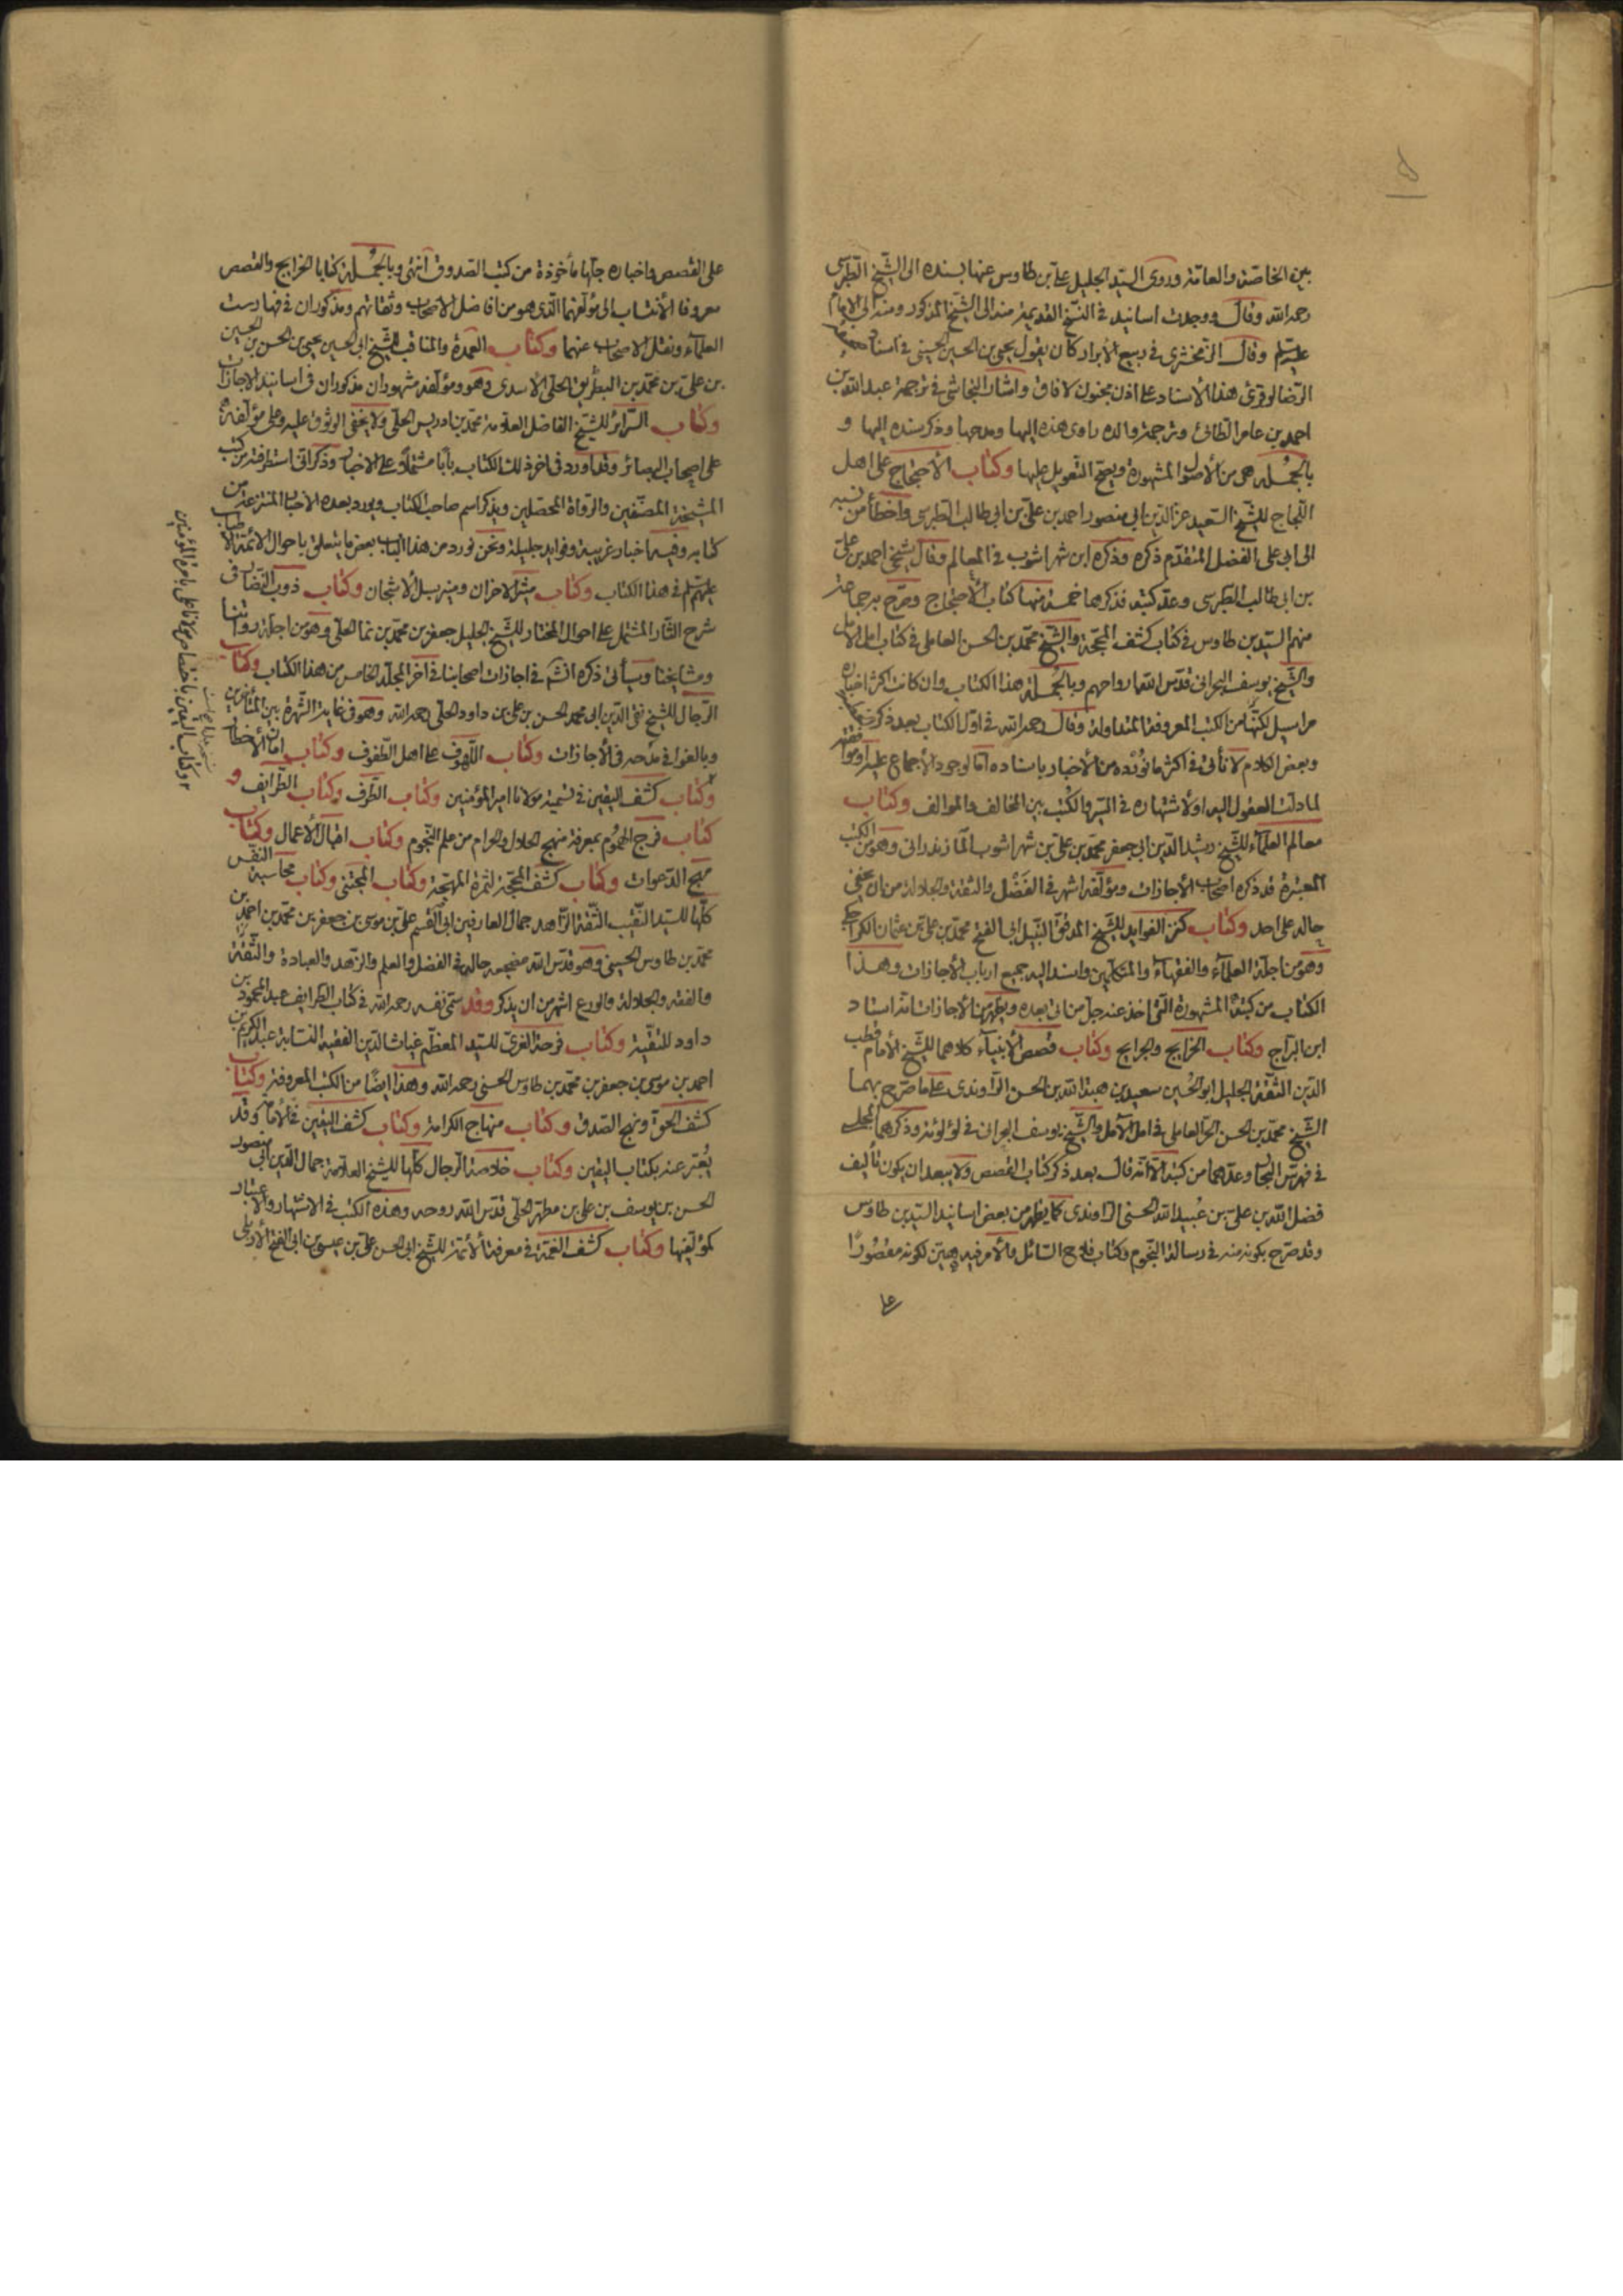 بين الخاصّة والعامّة وروى السيّد الجليل علىّ بن طاوس عنها بسنده الى الشّيخ الطّبرسى
رحمه الله وقال ووجدت اسانيد فى النسخ القديمة منه الى الشّيخ المذكور ومنه الى الامام
عليه السلم وقال الزمخشرى فى ربيع الأبرار كان يقول يحيى بن الحسين الحسينى فى اسناد صحيفة
الرّضا لو قرئ هذا الأسناد على اذن مجنون لافاق واشار النجاشى فى ترجمة عبد الله بن
احمد بن عامر الطائى وترجمة والده راوى هذه اليها ومدحها وذكر سنده اليها و
بالجُمله هى من الأصول المشهورة ويصحّ التعويل عليها وكتاب الأحتجاج على اهل
اللّجاج للشّيخ السّعيد عزّ الدّين ابى منصور احمد بن علىّ بن ابى طالب الطّبرسى واخطأ من نسبه
الى ابى على الفضل المتقدّم ذكره وذكره ابن شهراشوب فى المعالم وقال شيخى احمد بن علىّ
بن ابى طالب الطّبرسى وعدّ كتبه فذكر منها كتاب الأحتجاج وصرّح به جماعة
منهم السيّد بن طاوس فى كتاب كشف المحجّة والشّيخ محمّد بن الحسن العاملى فى كتاب امل الامل
والشّيخ يوسف البحرانى قدّس الله ارواحهم وبالجُملة هذا الكتاب وان كانت اكثر اخباره
مراسيل لكنّها من الكتب المعروفة المتداولة وقال رحمه الله فى اوّل الكتاب بعد ذكر
وبعض الكلام لا نأتى فى اكثر ما نورده من الأخبار باسناده امّا لوجود الأجماع عليه او موافقته
لما دلّت العقول اليه او لاشتهاره فى السّير والكُتب بين المخالف والموالف وكتاب
معالم العلماء للشّيخ رشيد الدّين ابى جعفر محمّد بن علىّ بن شهراشوب المازندرانى وهو من الكتب
المعتبرة قد ذكره اصحاب الأجازات ومؤلّفه اشهر فى الفَضْل والثقة والجلالة من ان يخفى
حاله على احد وكتاب كنز الفوايد للشّيخ المدقّق النّبيل ابى الفتح محمّد بن علىّ بن عثمان الكراجكى
وهو من اجلّة العلماء والفقهاء والمتكلّمين واسند اليه جميع ارباب الأجازات وهذا
الكتاب من كتبه المشهورة الّتى اخذ عنه جلّ من اتى بعده ويظهر من الأجازات انّه استاد
ابن البرّاج وكتاب الخرايج والجرايج وكتاب قصص الأنبياء كلاهما للشّيخ الأمام قطب
الدّين الثّقة الجليل ابو الحُسين سعيد بن هبة الله بن الحسن الرّاوندى على ما صرّح بهما
الشّيخ محمّد بن الحسن الحرّ العاملى فى امل الآمل والشّيخ يوسف البحرانى فى لؤلؤته وذكرهما المجلسى
فى فهرس البحار وعدّهما من كتبه الّا انّه قال بعد ذكر كتاب القصص ولا يبعد ان يكون تأليف
فضل الله بن علىّ بن عُبيد الله الحسنى الرّاوندى كما يظهر من بعض اسانيد السّيد بن طاوس
وقد صرّح بكونه منه فى رسالة النّجوم وكتاب فلاح السّائل والأمر فيه هيّن لكونه مقصُورًا
على
على القصص واخباره جلّها مأخوذة من كتب الصّدوق انتهى وبالجُملة كتابا الخرايج والقصص
معروفا الأنتساب الى مؤلّفهما الّذى هو من افاضل الاصحاب وثقاتهم ومذكوران فى فهارست
العلماء ونقل الاصحاب عنهما وكتاب العمدة والمناقب للشّيخ ابى الحسين يحيى بن الحسن بن الحسين
بن علىّ بن محمّد بن البطريق الحلّى الأسدى وهو ومؤلفه مشهوران مذكوران فى اسانيد الاجازات
وكتاب السّرائر للشّيخ الفاضل العلّامة محمّد بن ادريس الحلّى ولا يخفى الوثوق عليه وعلى مؤلّفه
على اصحاب البصائر وقد اورد فى اخر ذلك الكتاب بابًا مشتملًا على الاخبار وذكر انّى استطرفته من كتب
المشيخة المصنّفين والرّواة المحصّلين ويذكر اسم صاحب الكتاب ويورد بعده الأخبار المنتزعة من
كتابه وفيه اخبار غريبة وفوايد جليلة ونحن نورد من هذا الباب بعض ما يتعلق باحوال الائمّة الاطياب
عليهم السلم فى هذا الكتاب وكتاب مثير الاحزان ومنير سبل الأشجان وكتاب ذوب النّضار فى
شرح الثّار المشتمل على احوال المختار للشّيخ الجليل جعفر بن محمّد بن نما الحلّى وهو من اجلّة رواتنا
ومشايخنا وسيأتى ذكره انشم فى اجازات اصحابنا فى آخر المجلّد الخامس من هذا الكتاب وكتاب
الرّجال للشّيخ تقىّ الدّين ابى محمد الحسن بن على بن داود الحلّى رحمه الله وهو فى غاية الشّهرة بين المتأخّرين
وبالغوا فى مدحه فى الأجازات وكتاب اللّهوف على اهل الطّفوف وكتاب امان الأخطار
وكتاب كشف اليقين فى تسمية مولانا امير المؤمنين وكتاب الطّرف وكتاب الطّرايف و
كتاب فرج الهموم بمعرفة منهج الحلال والحرام من علم النّجوم وكتاب اقبال الأعمال وكتاب
مهج الدّعوات وكتاب كشف المحجّة لثمرة المهجة وكتاب المجتنى وكتاب محاسبة النّفس
كلّها للسيّد النّقيب الثّقة الزّاهد جمال العارفين ابى القسم علىّ بن موسى بن جعفر بن محمّد بن احمد بن
محمّد بن طاوس الحسينى وهو قدّس الله مضجعه حاله فى الفضل والعلم والزّهد والعبادة والثّقة
والفقه والجلالة والورع اشهر من ان يذكر وقد سمّى نفسه رحمه الله فى كتاب الطّرايف عبد المحمود بن
داود للتقيّة وكتاب فرحة الغرىّ للسيّد المعظّم غياث الدّين الفقيه النسّابة عبد الكريم بن
احمد بن موسى بن جعفر بن محمّد بن طاوس الحسنى رحمه الله وهذا ايضًا من الكتب المعروفة وكتاب
كشف الحقّ ونهج الصّدق وكتاب منهاج الكرامة وكتاب كشف اليقين فى الأمامة وقد
يُعبّر عنه بكتاب اليقين وكتاب خلاصة الرّجال كلّها للشّيخ العلّامة جمال الدّين ابى منصور
الحسن بن يوسف بن على بن مطهّر الحلّى قدّس الله روحه وهذه الكتب فى الاشتهار والاعتبار
كمؤلّفها وكتاب كشف الغمّة فى معرفة الأئمّة للشّيخ ابى الحسن علىّ بن عيسى بن ابى الفتح الأربلى
وكتاب اليقين باختصاص مولانا على بامرة المؤمنين